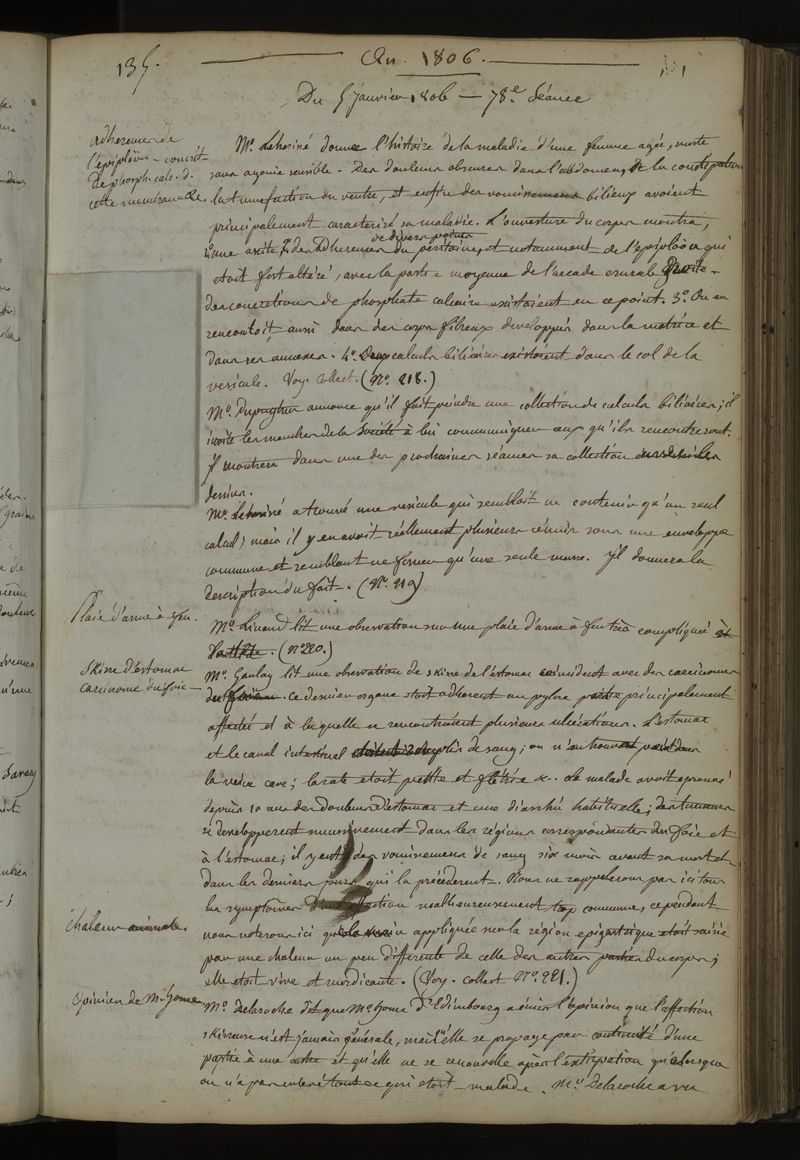 135.
An. 1806.
Du 5 janvier 1806 — 78.e Séance
adherences de
l'épiploon - concrét.
de phosph. calc. d.
cette membrane &c.
Mr. donne l'histoire de la maladie d'une femme agée, morte
sans agonie sensible. Des douleurs obscures dans l'abdomen, de la constipation
la tumefaction du ventre, et enfin des vomissemens bilieux avoient
principalement caracterisé sa maladie. L'ouverture du corps montra,
1.o une ascite 2.o des adherences de divers points du péritoine, et notamment de l'epiploon qui
etoit fort altéré, avec la partie moyenne de l'arcade crurale droite.
des concretions de phosphate calcaire existoient en ce point. 3.o On en
rencontroit aussi dans des corps fibreux developpés dans la matrice et
dans ses annexes. 4.o Deux calculs biliaires existoient dans le col de la
vesicule. Voy. Collect. (No. 218.)
Mr. Dupuytren annonce qu'il fait peindre une collection de calculs biliaires; il
invite les membres de la Société à lui communiquer ceux qu'ils rencontreront.
Il montrera dans une des prochaines séances sa collection
dessins.
Mr. a trouvé une vesicule qui sembloit ne contenir qu'un seul
calcul; mais il y en avoit réellement plusieurs réunis sous une enveloppe
commune et semblant ne former qu'une seule masse. Il donnera la
description du fait. (No. 219)
Plaie d'arme à feu.
Mr. lit une observation sur une plaie d'arme à feu très compliquée
(No. 220.)
Skire d'estomac
carcinome du foie —
Mr. Gaulay lit une observation de skire de l'estomac coincident avec des carcinomes
du foie. Ce dernier organe etoit adherent au pylore partie principalement
affectée et à laquelle se rencontroient plusieurs ulcérations. L'estomac
et le canal intestinal de sang; on n'en trouvoit point dans
la veine cave; la rate etoit petite et flétrie &c. Le malade avoit eprouvé
depuis 10 ans des douleurs d'estomac et une diarrhé habituelle; des tumeurs
se developperent successivement dans les régions correspondantes du foie et
à l'estomac; il y eut des vomissemens de sang six mois avant sa mort et
dans les derniers jours qui la précéderent. Nous ne rappelerons pas ici tous
les symptomes d'une affection malheureusement trop commune, cependant
chaleur animale.
nous noterons ici que la main appliquée sur la région epigastrique etoit saisie
par une chaleur un peu differente de celle des autres parties du corps;
elle etoit vive et mordicante. (Voy. collect No. 221.)
Opinion de Mr. home
Mr. Delaroche dit que Mr. home d'Edimbourg a émis l'opinion que l'affection
skirreuse n'est jamais générale, mais qu'elle se propage par continuité d'une
partie à une autre et qu'elle ne se renouvelle après l'extirpation que lorsque
on n'a pas enlevé tout ce qui etoit malade. Mr. Delaroche a vu